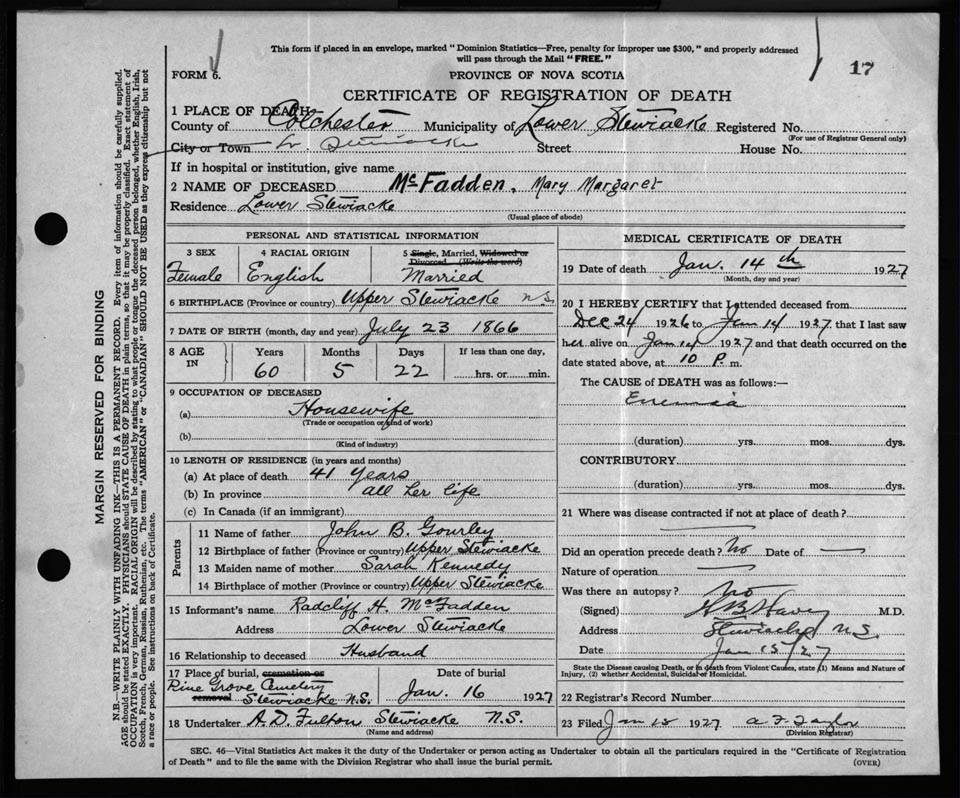 This form if placed in an envelope, marked "Dominion Statistics—Free, penalty for improper use $300," and properly addressed
will pass through the Mail "FREE."
17
FORM 6.
PROVINCE OF NOVA SCOTIA
CERTIFICATE OF REGISTRATION OF DEATH
1 PLACE OF DEATH
County of Colchester Municipality of Lower Stewiacke Registered No.
(For use of Registrar General only)
City or Town L. Stewiacke Street House No.
If in hospital or institution, give name
2 NAME OF DECEASED McFadden, Mary Margaret
Residence Lower Stewiacke
(Usual place of abode)
PERSONAL AND STATISTICAL INFORMATION
3 SEX
Female
4 RACIAL ORIGIN
English
5 Single, Married, Widowed or
Divorced (Write the word)
Married
6 BIRTHPLACE (Province or country) Upper Stewiacke N.S.
7 DATE OF BIRTH (month, day and year) July 23 1866
8 AGE IN
Years Months Days If less than one day,
60 5 22 hrs. or min.
9 OCCUPATION OF DECEASED
(a) Housewife
(Trade or occupation or kind of work)
(b)
(Kind of industry)
10 LENGTH OF RESIDENCE (in years and months)
(a) At place of death 41 years
(b) In province all her life
(c) In Canada (if an immigrant)
Parents
11 Name of father John B. Gourley
12 Birthplace of father (Province or country) Upper Stewiacke
13 Maiden name of mother Sarah Kennedy
14 Birthplace of mother (Province or country) Upper Stewiacke
15 Informant's name Radcliff H. McFadden
Address Lower Stewiacke
16 Relationship to deceased Husband
17 Place of burial, cremation or Date of burial
Pine Grove Cemetery
removal Stewiacke N.S. Jan. 16 1927
18 Undertaker A. D. Fulton Stewiacke N.S.
(Name and address)
MEDICAL CERTIFICATE OF DEATH
19 Date of death Jan. 14th 1927
(Month, day and year)
20 I HEREBY CERTIFY that I attended deceased from
Dec 24 1926 to Jan 14 1927, that I last saw
her alive on Jan 14 1927 and that death occurred on the
date stated above, at 10 P. m.
The CAUSE of DEATH was as follows:—
(duration) yrs. mos. dys.
CONTRIBUTORY
(duration) yrs. mos. dys.
21 Where was disease contracted if not at place of death?
Did an operation precede death? No Date of —
Nature of operation —
Was there an autopsy? No
(Signed) M.D.
Address Stewiacke N.S.
Date Jan 15/27
State the Disease causing Death, or in death from Violent Causes, state (1) Means and Nature of
Injury, (2) whether Accidental, Suicidal or Homicidal.
22 Registrar's Record Number
23 Filed Jan 15 1927 a F Taylor
(Division Registrar)
SEC. 46—Vital Statistics Act makes it the duty of the Undertaker or person acting as Undertaker to obtain all the particulars required in the "Certificate of Registration
of Death" and to file the same with the Division Registrar who shall issue the burial permit. (OVER)
MARGIN RESERVED FOR BINDING
N.B.—WRITE PLAINLY WITH UNFADING INK—THIS IS A PERMANENT RECORD. Every item of information should be carefully supplied.
AGE should be stated EXACTLY. PHYSICIANS should STATE CAUSE OF DEATH in plain terms, so that it may be properly classified. Exact statement of
OCCUPATION is very important. RACIAL ORIGIN will be described by stating to what people or tongue the deceased person belonged, whether English, Irish,
Scotch, French, German, Russian, Ruthenian, etc. The terms "AMERICAN" or "CANADIAN" SHOULD NOT BE USED as they express citizenship but not
a race or people. See instructions on back of Certificate.